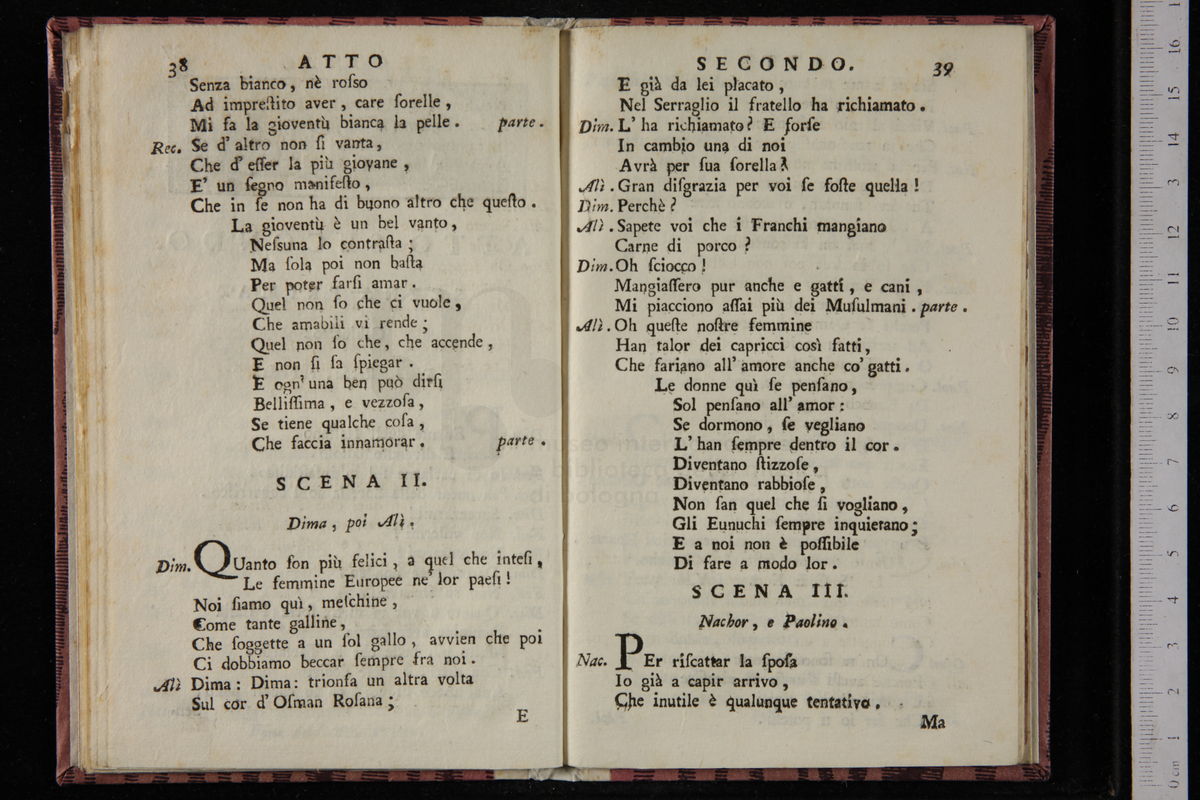 38 ATTO
Senza bianco, nè roſso
Ad impreſtito aver, care ſorelle,
Mi fa la gioventù bianca la pelle. parte.
Rec. Se d' altro non ſi vanta,
Che d' eſſer la più giovane,
E' un ſegno manifeſto,
Che in ſe non ha di buono altro che queſto.
La gioventù è un bel vanto,
Neſsuna lo contraſta;
Ma ſola poi non baſta
Per poter farſi amar.
Quel non ſo che ci vuole,
Che amabili vi rende;
Quel non ſo che, che accende,
E non ſi ſa ſpiegar.
E ogn' una ben può dirſi
Belliſſima, e vezzoſa,
Se tiene qualche coſa,
Che faccia innamorar. parte.
SCENA II.
Dima, poi Alì.
Dim. QUanto ſon più felici, a quel che inteſi,
Le femmine Europee ne' lor paeſi!
Noi ſiamo quì, meſchine,
Come tante galline,
Che ſoggette a un ſol gallo, avvien che poi
Ci dobbiamo beccar ſempre fra noi.
Alì Dima: Dima: trionfa un altra volta
Sul cor d' Oſman Roſana;
E
SECONDO. 39
E già da lei placato,
Nel Serraglio il fratello ha richiamato.
Dim. L' ha richiamato? E forſe
In cambio una di noi
Avrà per ſua ſorella?
Alì. Gran diſgrazia per voi ſe foſte quella!
Dim. Perchè?
Alì. Sapete voi che i Franchi mangiano
Carne di porco?
Dim. Oh ſciocco!
Mangiaſſero pur anche e gatti, e cani,
Mi piacciono aſſai più dei Muſulmani. parte.
Alì. Oh queſte noſtre femmine
Han talor dei capricci così fatti,
Che fariano all' amore anche co' gatti.
Le donne quì ſe penſano,
Sol penſano all' amor:
Se dormono, ſe vegliano
L' han ſempre dentro il cor.
Diventano ſtizzoſe,
Diventano rabbioſe,
Non ſan quel che ſi vogliano,
Gli Eunuchi ſempre inquietano;
E a noi non è poſſibile
Di fare a modo lor.
SCENA III.
Nachor, e Paolino.
Nac. PEr riſcattar la ſpoſa
Io già a capir arrivo,
Che inutile è qualunque tentativo.
Ma